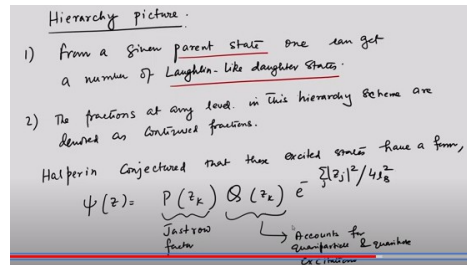 Hierarchy picture.
1) From a given parent state one can get
a number of Laughlin-like daughter states.
2) The fractions at any level in this hierarchy scheme are
denoted as continued fractions.
Halperin conjectured that these excited states have a form,
Ψ(z) = P(z_k) Q(z_k) e^{-Σ|z_j|²/4l_B²}
Jastrow factor
Accounts for quasiparticle & quasihole excitations